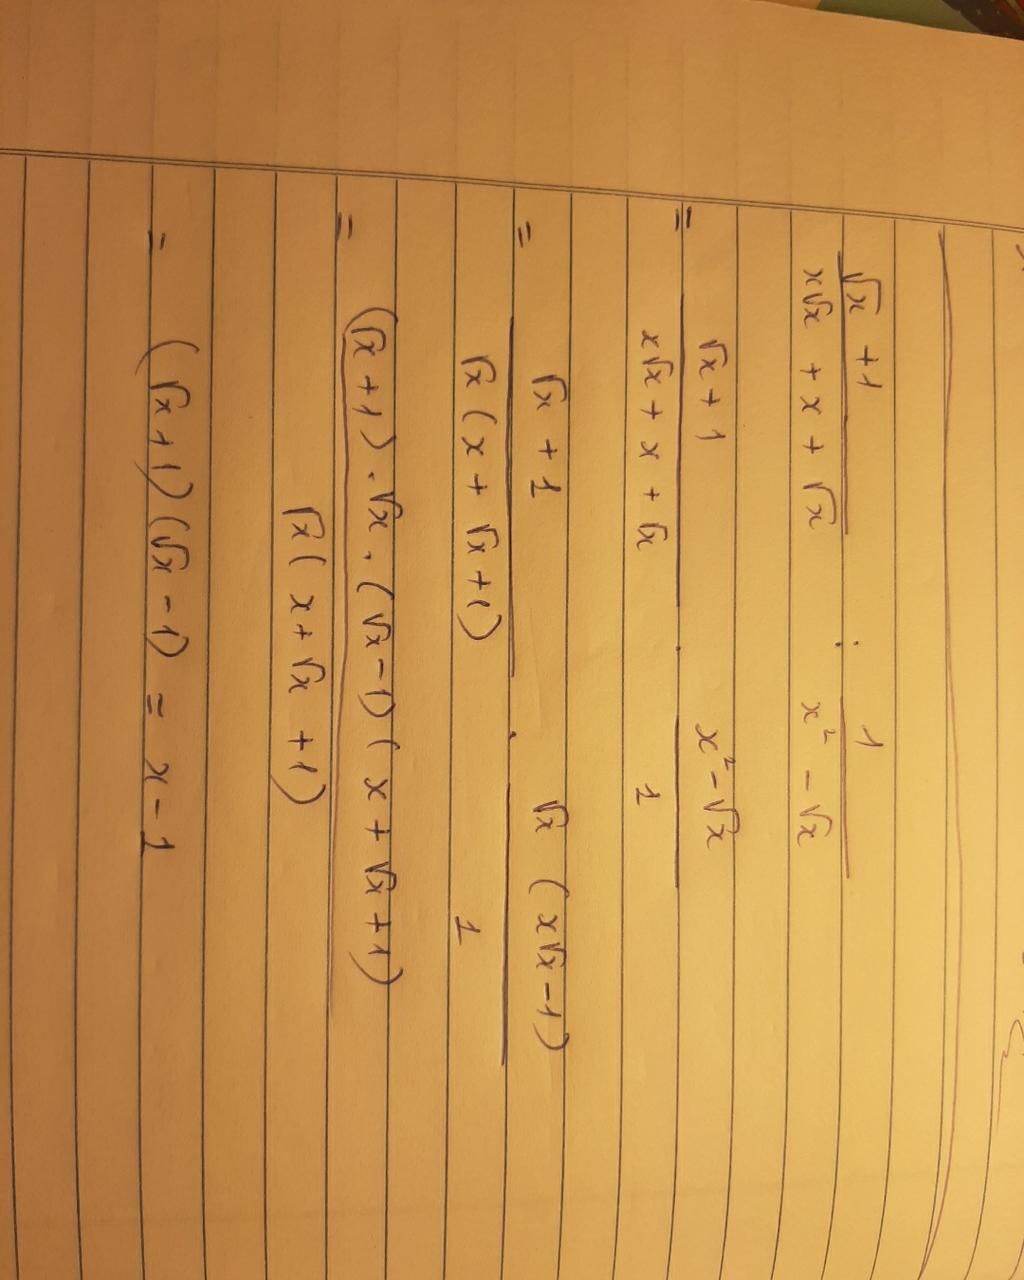 (√x + 1)/(x√x + x + √x) : 1/(x² - √x)
= (√x + 1)/(x√x + x + √x) . (x² - √x)/1
= (√x + 1)/(√x (x + √x + 1)) . (√x (x√x - 1))/1
= ((√x + 1) . √x . (√x - 1) (x + √x + 1))/(√x (x + √x + 1))
= (√x + 1) (√x - 1) = x - 1